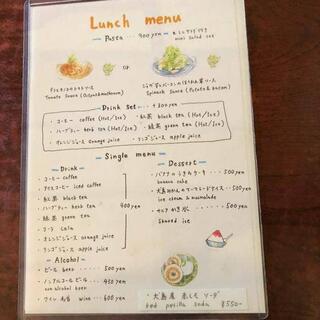 Lunch menu
Pasta ... 900 yen
mini salad set
or
トマトソース
Tomato Sauce (Octpus & mushroom)
Spinach Sauce (Potato & bacon)
Drink Set +300yen
・コーヒー coffee (Hot/Ice) ・紅茶 black tea (Hot/Ice)
・ハーブティー herb tea (Hot/Ice) ・緑茶 green tea (Hot/Ice)
・オレンジジュース orange juice ・リンゴジュース apple juice
Single menu
Drink
・コーヒー coffee
・アイスコーヒー iced coffee
・紅茶 black tea
・ハーブティー herb tea 400yen
・緑茶 green tea
・コーラ Cola
・オレンジジュース orange juice
・リンゴジュース apple juice
Alcohol
・ビール beer 500yen
・ノンアルコールビール 450yen
non alcohol beer
・ワイン wine 600yen
Dessert
・バナナケーキ 500yen
banana cake
500yen
ice cream & marmalade
・かき氷 500yen
Shaved ice
・犬島産 赤しそソーダ
Red perilla soda ¥550-